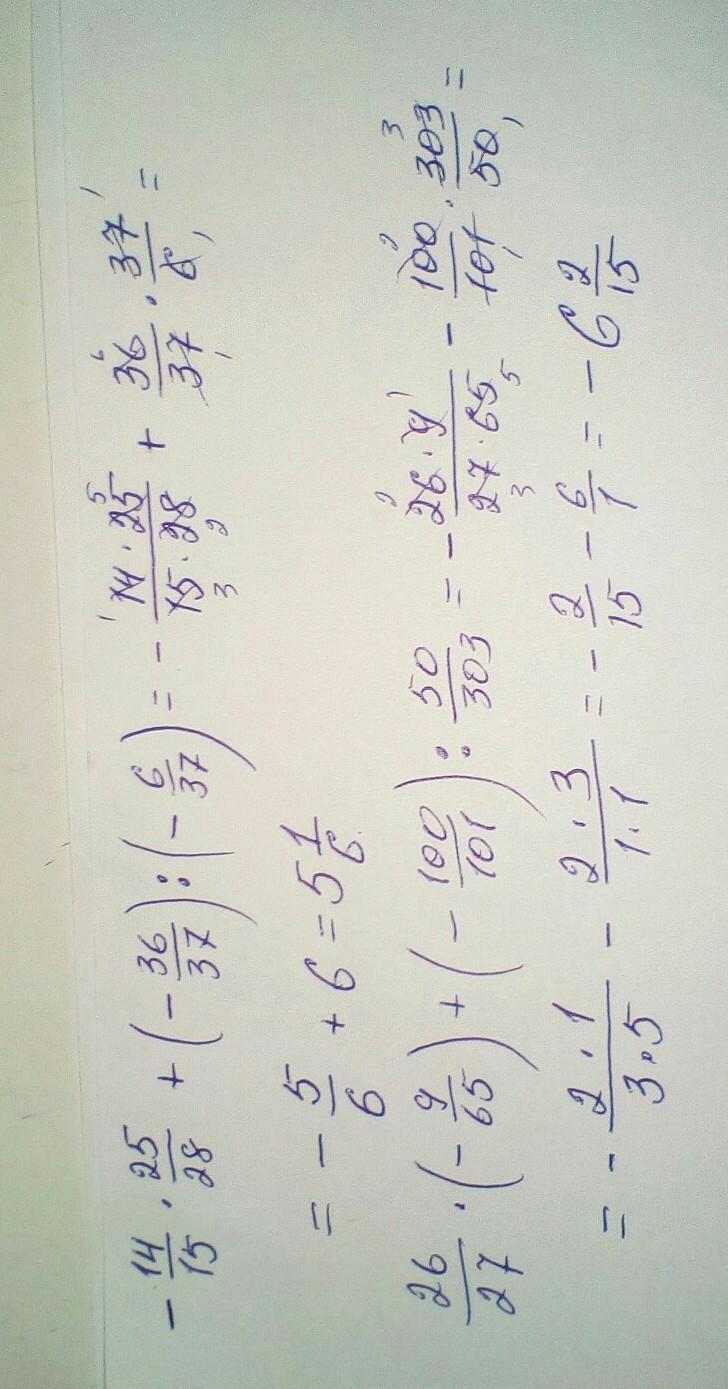 - 14/15 · 25/28 + (- 36/37) : (- 6/37) = - 14 · 25/15 · 28 + 36/37 · 37/6 =
= - 5/6 + 6 = 5 1/6
26/27 · (- 9/65) + (- 100/101) : 50/303 = - 26 · 9/27 · 65 - 100/101 · 303/50 =
= - 2 · 1/3 · 5 - 2 · 3/1 · 1 = - 2/15 - 6/1 = - 6 2/15